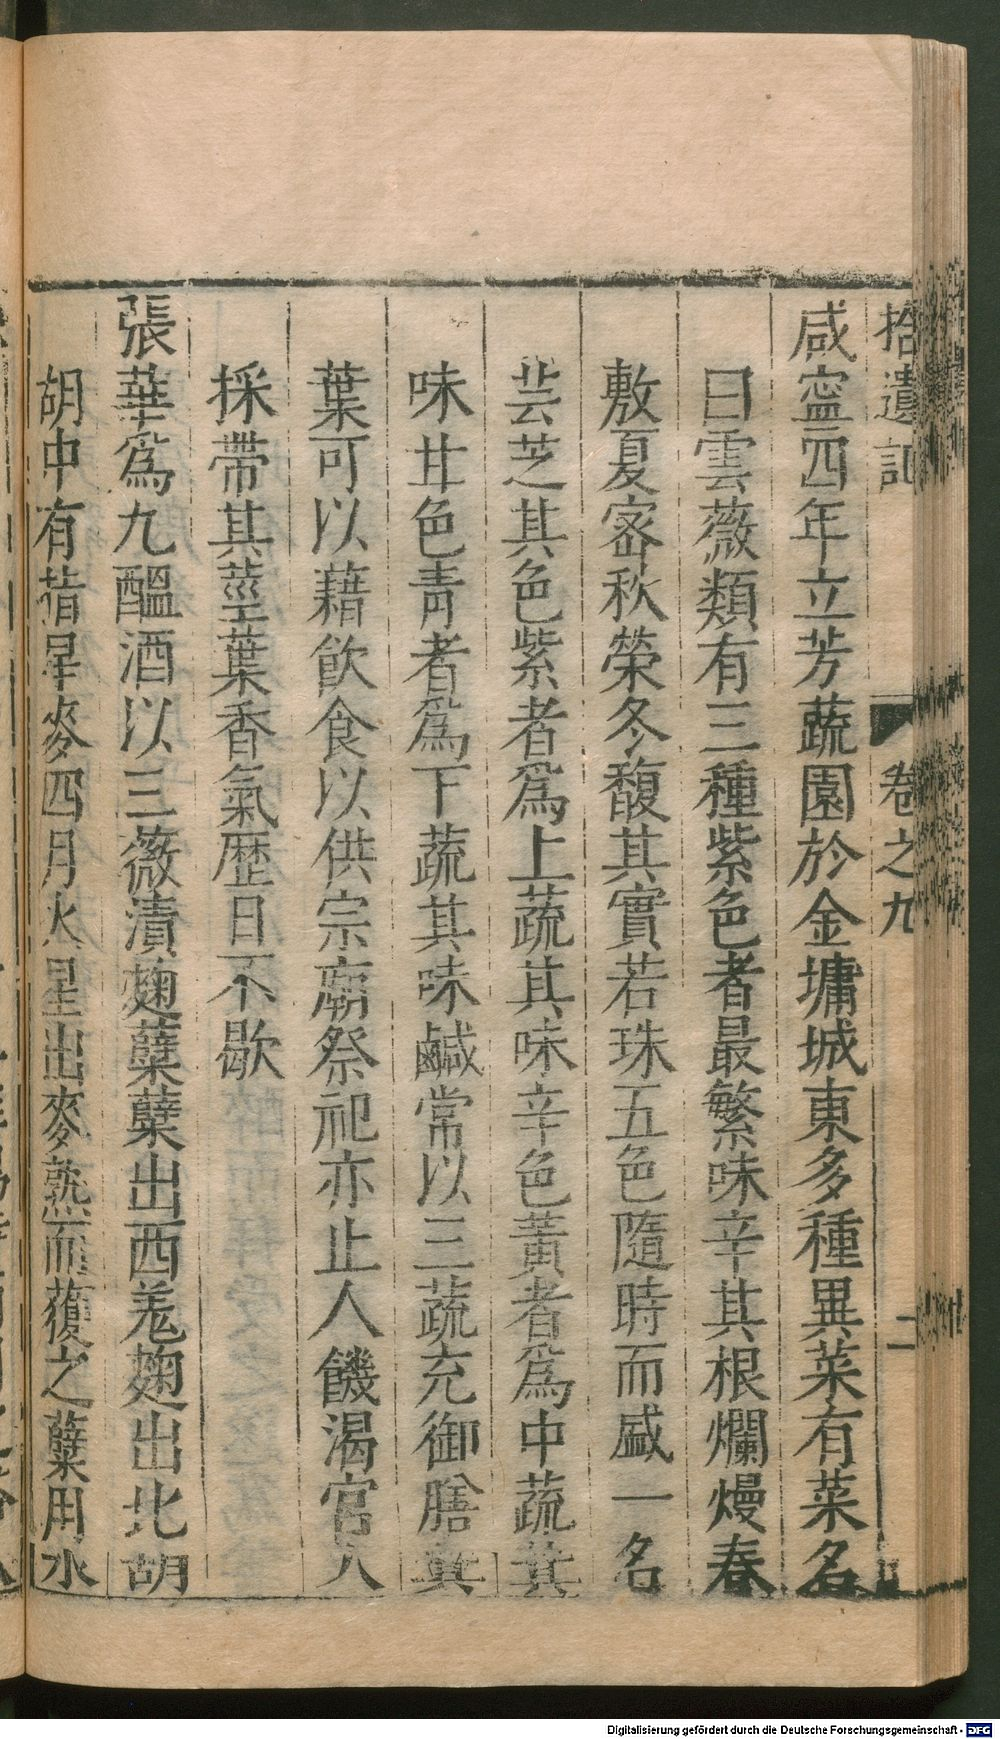 拾遺記 卷之九 二
咸寧四年立芳蔬園於金墉城東多種異菜有菜名
曰雲薇類有三種紫色者最繁味辛其根爛熳春
敷夏密秋榮冬馥其實若珠五色隨時而盛一名
芸芝其色紫者爲上蔬其味辛色黃者爲中蔬其
味甘色青者爲下蔬其味鹹常以三蔬充御膳其
葉可以藉飲食以供宗廟祭祀亦止人饑渴宮人
採帶其莖葉香氣歷日不歇
張華爲九醞酒以三薇漬麹糵糵出西羌麹出北胡
胡中有指星麥四月火星出麥熟而穫之糵用水
Digitalisierung gefördert durch die Deutsche Forschungsgemeinschaft - DFG